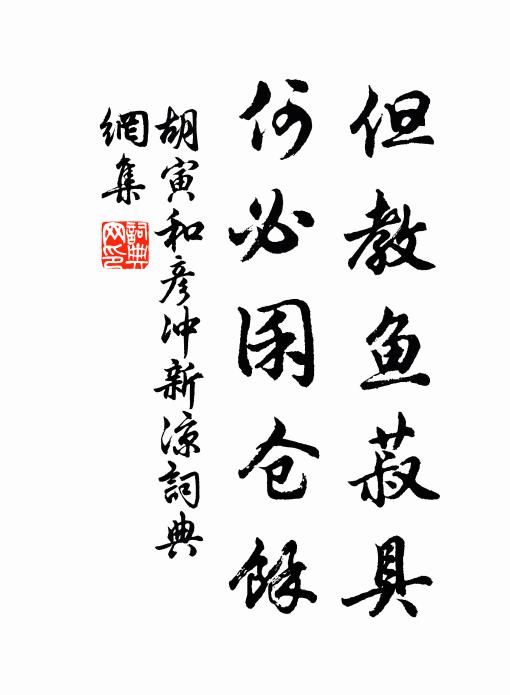 但教鱼菽具
何必囷仓餘
胡寅和彦冲新涼詞典
網集
詞典
网印